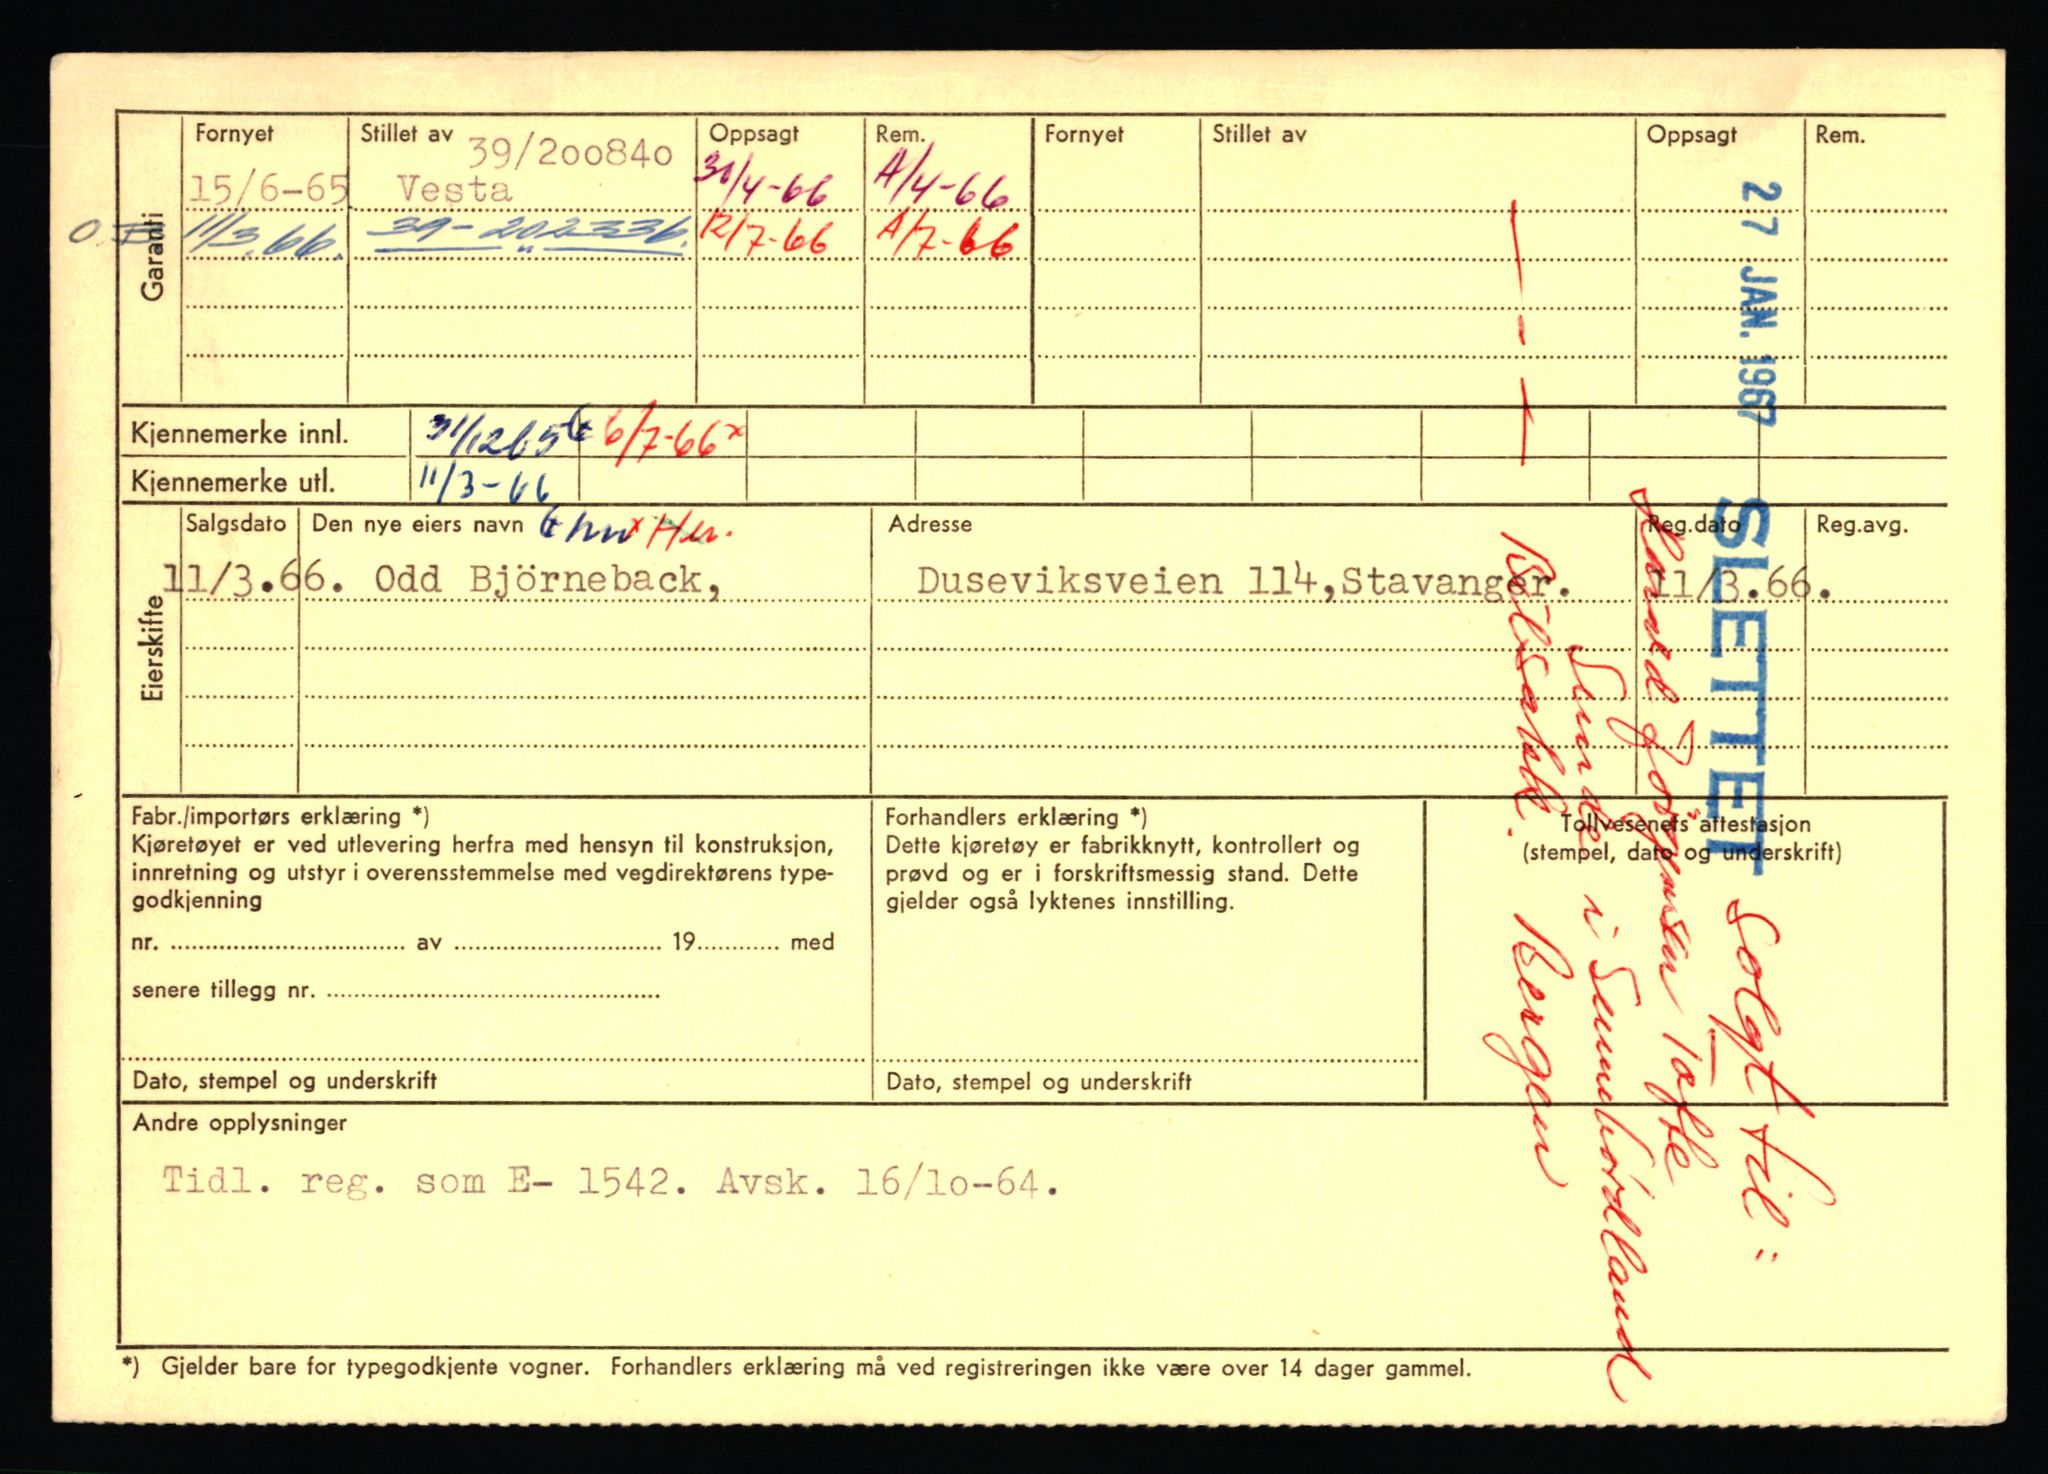 Garanti
Fornyet Stillet av Oppsagt Rem. Fornyet Stillet av Oppsagt Rem.
39/200840
15/6-65 Vesta 30/4-66 A/4-66
11/3.66. 39-202336. 12/7-66 A/7-66
Kjennemerke innl. 31/12 65 6/7-66 x
Kjennemerke utl. 11/3-66
Eierskifte
Salgsdato Den nye eiers navn x Her. Adresse Reg.dato Reg.avg.
11/3.66. Odd Björneback, Duseviksveien 114,Stavanger. 11/3.66.
Fabr./importørs erklæring *)
Kjøretøyet er ved utlevering herfra med hensyn til konstruksjon,
innretning og utstyr i overensstemmelse med vegdirektørens type-
godkjenning
nr. ........ av ........ 19........ med
senere tillegg nr. ........
Dato, stempel og underskrift
Forhandlers erklæring *)
Dette kjøretøy er fabrikknytt, kontrollert og
prøvd og er i forskriftsmessig stand. Dette
gjelder også lyktenes innstilling.
Dato, stempel og underskrift
Tollvesenets attestasjon
(stempel, dato og underskrift)
Andre opplysninger
Tidl. reg. som E- 1542. Avsk. 16/10-64.
*) Gjelder bare for typegodkjente vogner. Forhandlers erklæring må ved registreringen ikke være over 14 dager gammel.
27 JAN. 1967 SLETTET
Solgt til:
Torgersen Tofte
Sunde i Sunnhordland
Bilsakk. Bergen